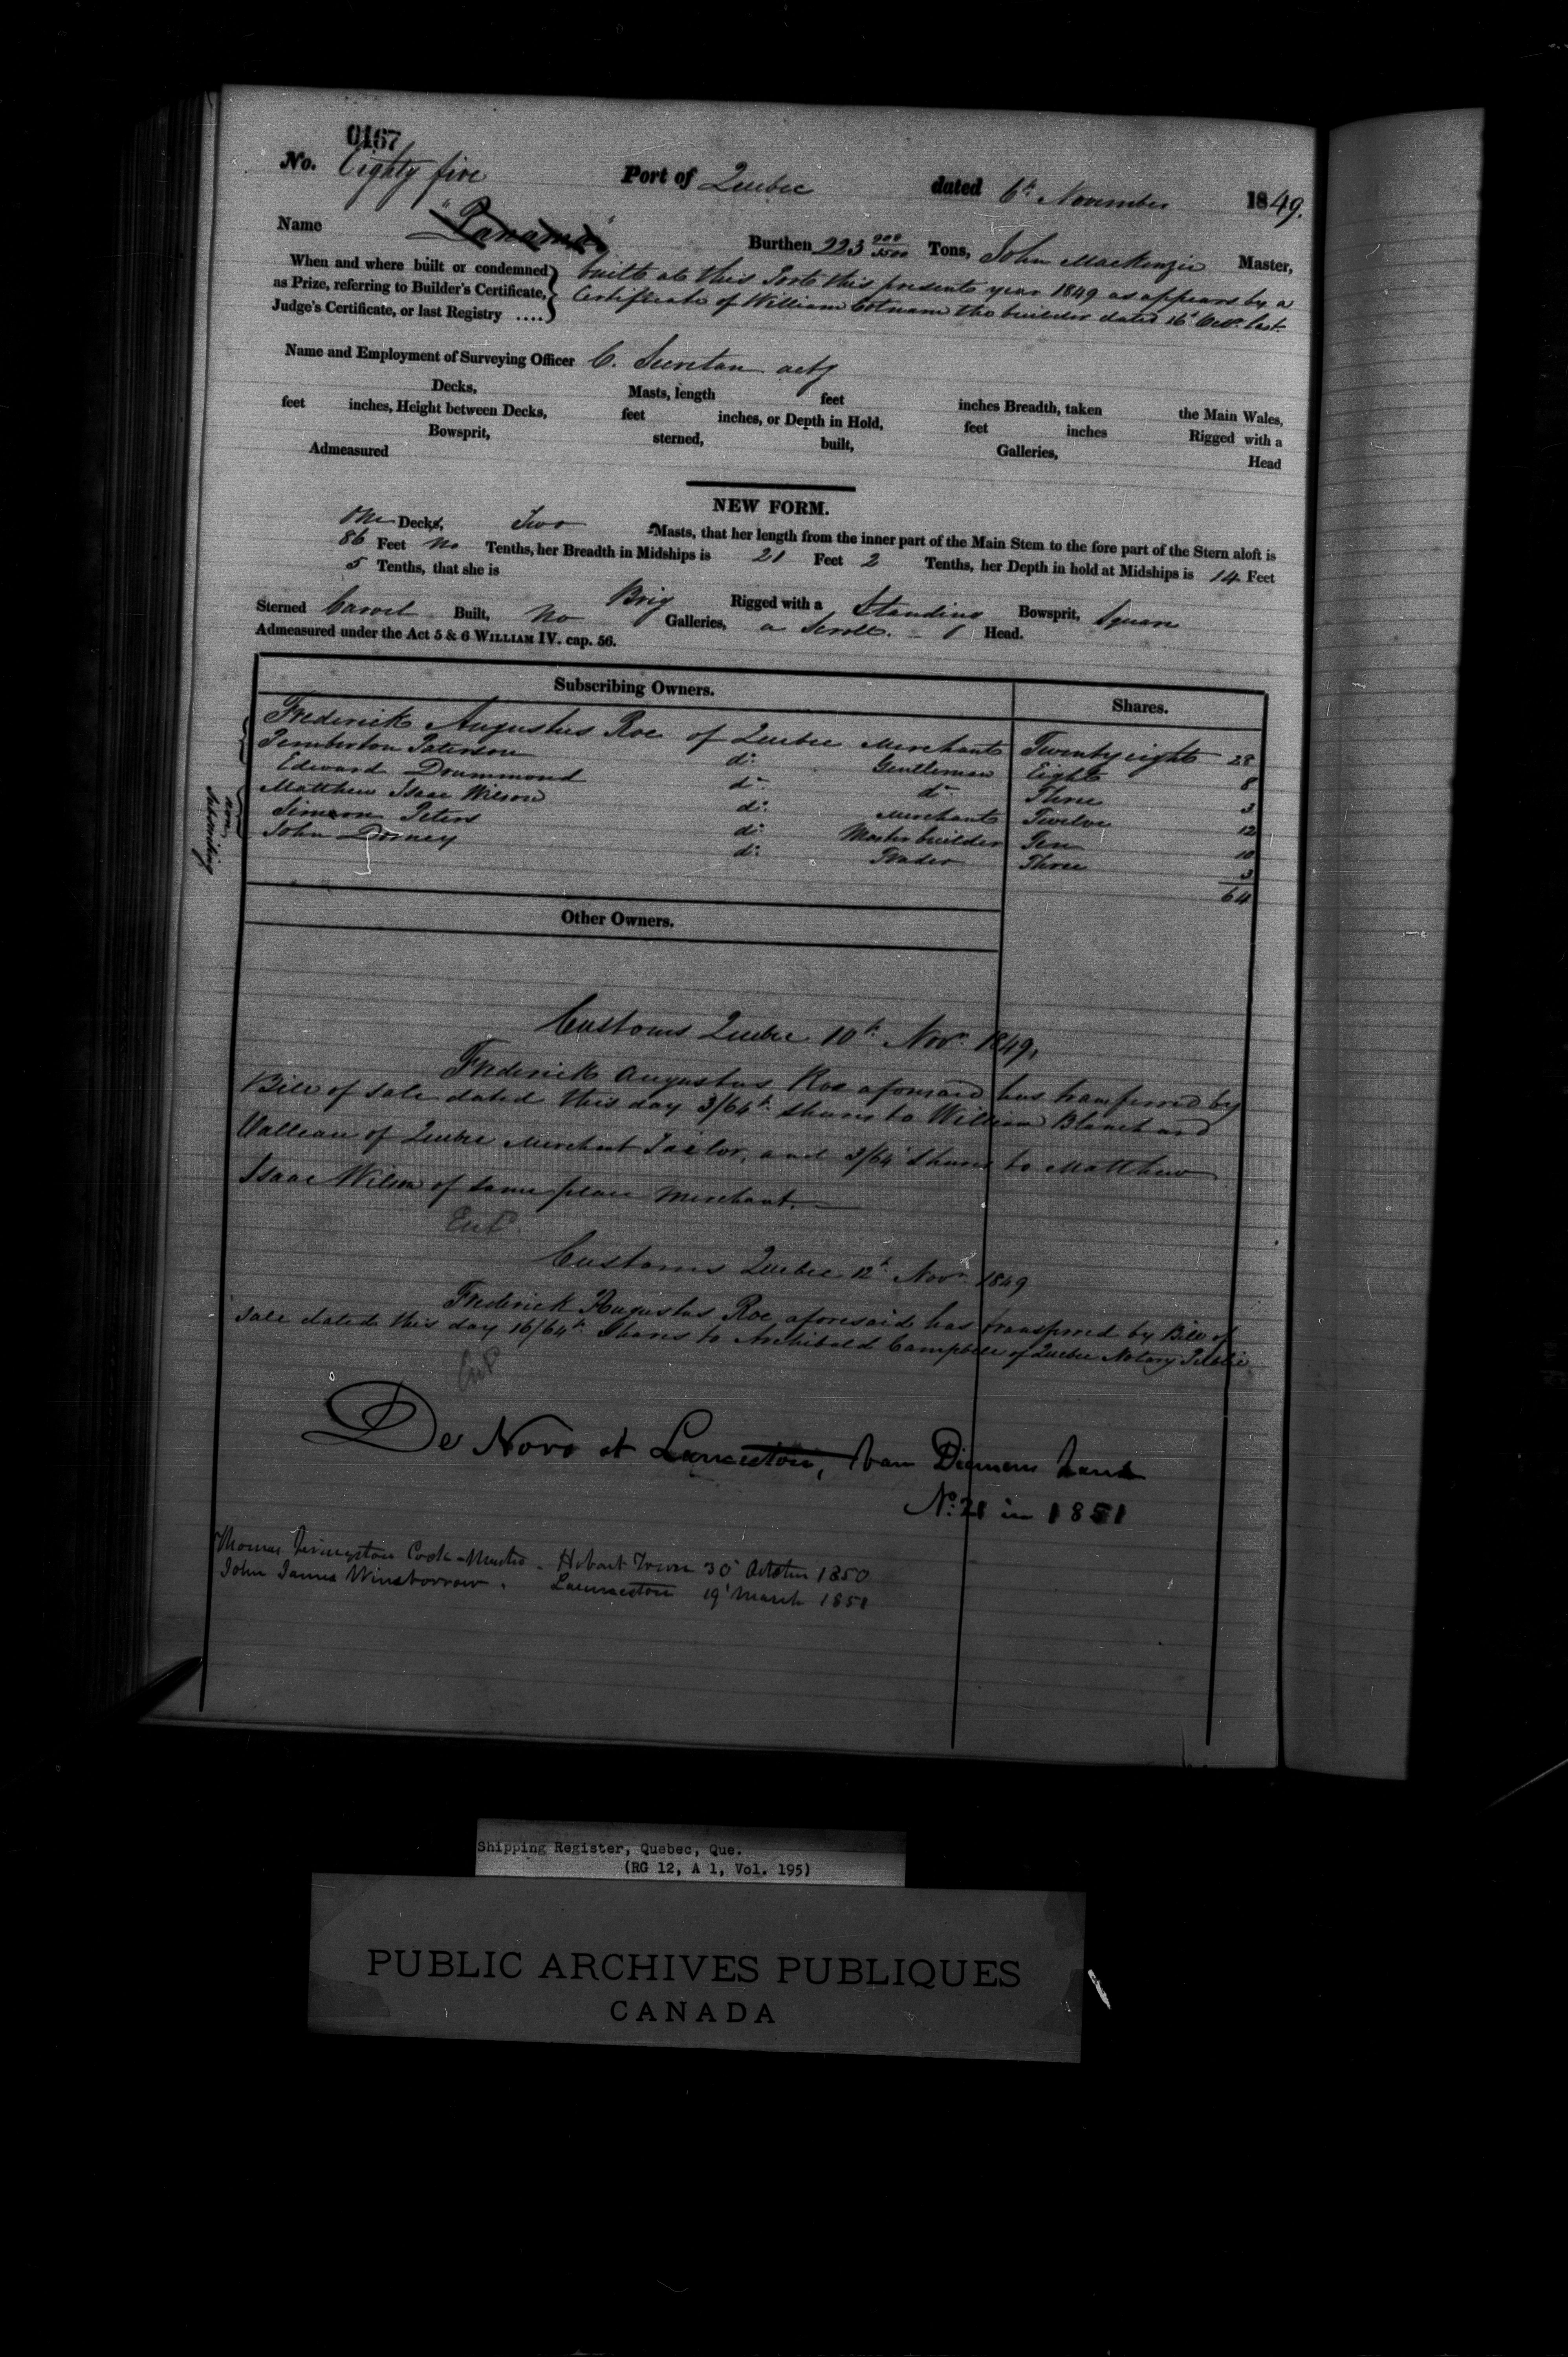 0167
No. Eighty five Port of Quebec dated 6th November 1849.
Name "Panama" Burthen 223 900/3500 Tons, John MacKenzie Master,
When and where built or condemned as Prize, referring to Builder's Certificate, Judge's Certificate, or last Registry ....
built at this Port this present year 1849 as appears by a
Certificate of William Cotnam the builder dated 16th Octr. last.
Name and Employment of Surveying Officer C. Secretan actg
Decks, Masts, length feet inches Breadth, taken the Main Wales,
feet inches, Height between Decks, feet inches, or Depth in Hold, feet inches Rigged with a
Bowsprit, sterned, built, Galleries, Head
Admeasured
NEW FORM.
One Decks, Two Masts, that her length from the inner part of the Main Stem to the fore part of the Stern aloft is
86 Feet no Tenths, her Breadth in Midships is 21 Feet 2 Tenths, her Depth in hold at Midships is 14 Feet
5 Tenths, that she is Brig Rigged with a Standing Bowsprit, Square
Sterned Carvel Built, No Galleries, a Scroll Head.
Admeasured under the Act 5 & 6 WILLIAM IV. cap. 56.
Subscribing Owners. Shares.
Frederick Augustus Roe of Quebec Merchant Twenty eight 28
Pemberton Paterson do. Gentleman Eight 8
Edward Drummond do. do. Three 3
Matthew Isaac Wilson do. Merchant Twelve 12
Simeon Peters do. Master builder Ten 10
John Dorney do. Trader Three 3
64
non Subscribing
Other Owners.
Customs Quebec 10th Novr. 1849,
Frederick Augustus Roe aforesaid has transferred by
Bill of Sale dated this day 3/64th Shares to William Blanchard
Valleau of Quebec Merchant Tailor, and 3/64 Shares to Matthew
Isaac Wilson of same place Merchant.
Customs Quebec 12th Novr. 1849
Frederick Augustus Roe aforesaid has transferred by Bill of
Sale dated this day 16/64th Shares to Archibald Campbell of Quebec Notary Public
De Novo at Launceston, Van Diemens Land
No. 21 in 1851
Thomas Livingston Cook Master. Hobart Town 30 October 1850
John James Winsborrow. Launceston 19 March 1851
Shipping Register, Quebec, Que.
(RG 12, A 1, Vol. 195)
PUBLIC ARCHIVES PUBLIQUES
CANADA